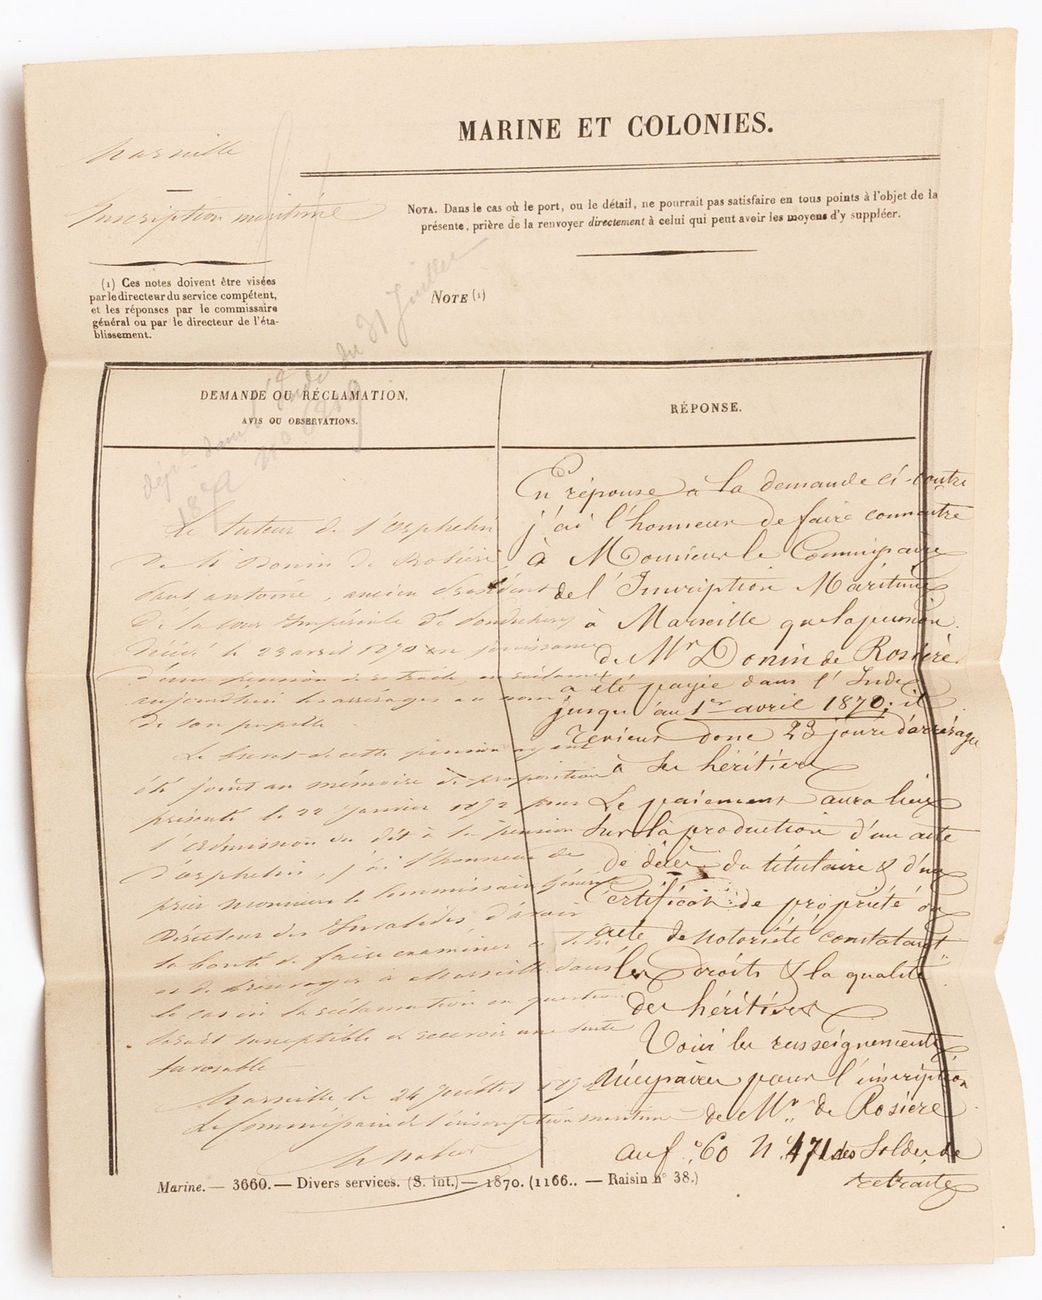 MARINE ET COLONIES.
Marseille
Inscription maritime
NOTA. Dans le cas où le port, ou le détail, ne pourrait pas satisfaire en tous points à l'objet de la
présente, prière de la renvoyer directement à celui qui peut avoir les moyens d'y suppléer.
(1) Ces notes doivent être visées
par le directeur du service compétent,
et les réponses par le commissaire
général ou par le directeur de l'éta-
blissement.
NOTE (1)
du 31 Juillet
DEMANDE OU RÉCLAMATION,
AVIS OU OBSERVATIONS.
Le tuteur de l'Orphelin
de M. Donin de Rosière
Paul antoine, ancien Président
de la Cour Impériale de Pondichéry
décédé le 23 avril 1870 en jouissance
d'une pension de retraite en réclame
aujourdhui les arrérages au nom
de son pupille.
Le brevet de cette pension ayant
été joint au mémoire de proposition
présenté le 22 Janvier 1872 pour
l'admission du dit à la pension
d'orphelin, j'ai l'honneur de
prier Monsieur le Commissaire Général
Directeur des Invalides d'avoir
la bonté de faire examiner
et de renvoyer à Marseille dans
le cas où la réclamation en question
serait susceptible de recevoir une suite
favorable
Marseille le 24 Juillet 1872
Le Commissaire de l'inscription maritime
RÉPONSE.
En réponse a la demande ci-contre
j'ai l'honneur de faire connaitre
à Monsieur le Commissaire
de l'Inscription Maritime
à Marseille que la pension
de Mr Donin de Rosière
a été payée dans l'Inde
jusqu'au 1er avril 1870; il
revient donc 23 jours d'arrérage
à ses héritiers
Le paiement aura lieu
sur la production d'un acte
de décès du titulaire & d'un
Certificat de propriété ou
acte de notoriété constatant
les droits & la qualité
des héritiers
Voici les renseignements
nécessaires pour l'inscription
de Mr de Rosière
au fo 60 No 471 des Soldes de
retraite
Marine. — 3660. — Divers services. (S. int.) — 1870. (1166.. — Raisin n° 38.)